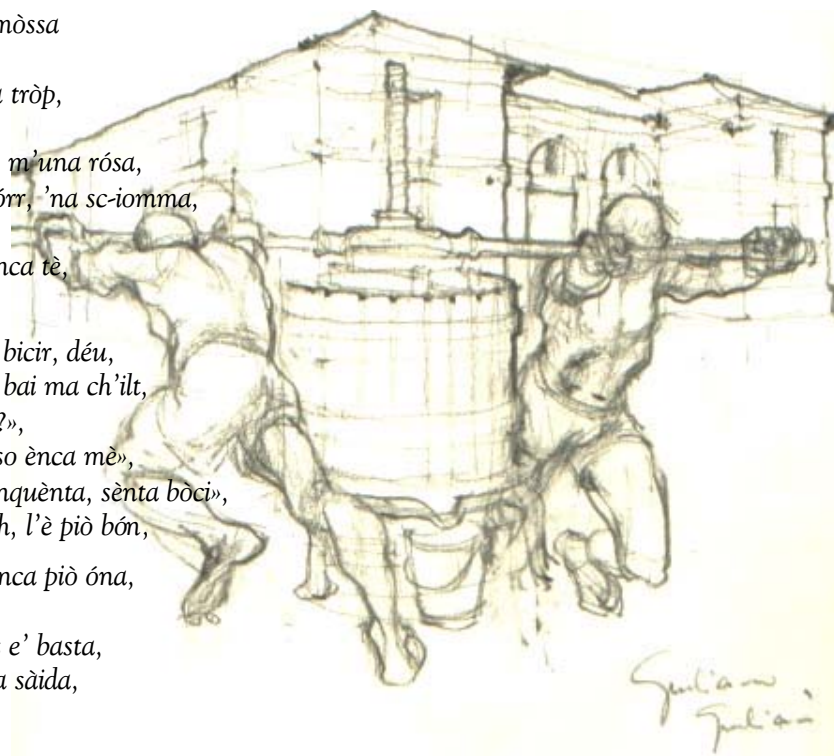 mòssa
tròp,
m'una rósa,
órr, 'na sc-iomma,
nca tè,
bicir, déu,
bai ma ch'ilt,
?»,
so ènca mè»,
nquènta, sènta bòci»,
h, l'è piò bón,
nca piò óna,
e' basta,
a sàida,
Giuliano